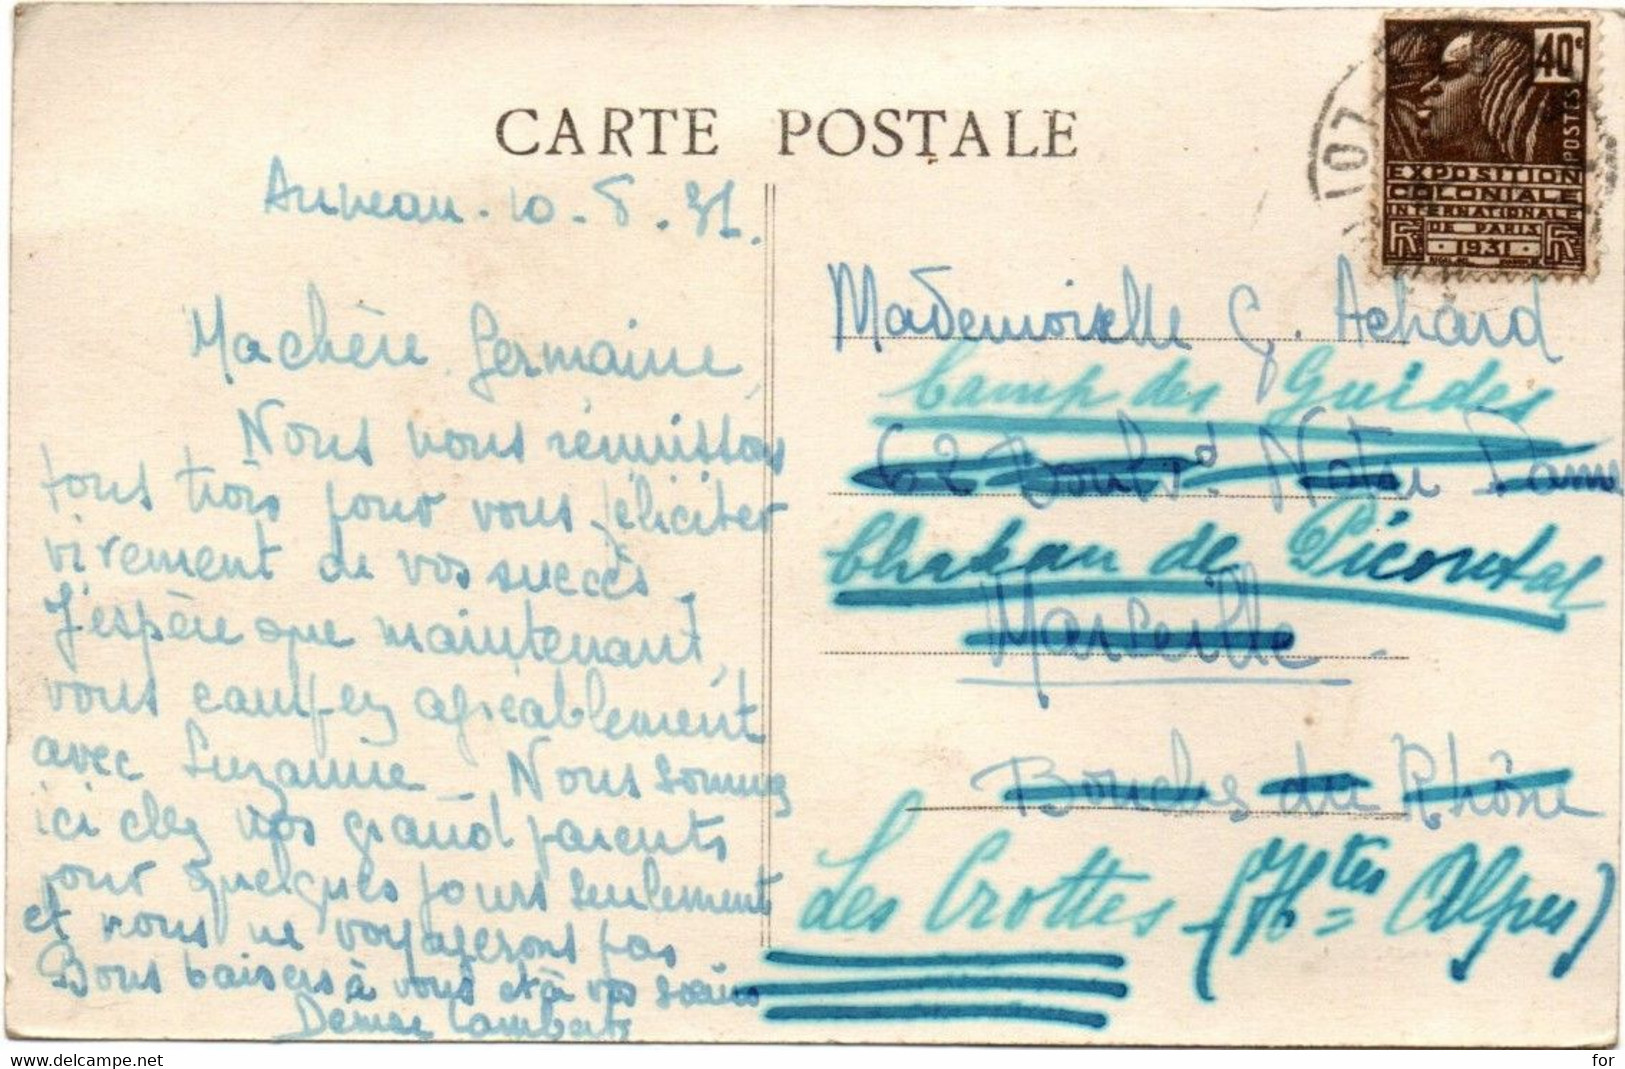 CARTE POSTALE
Auneau - 10 - 8 - 31.
Ma chère Germaine,
Nous nous réunissons
tous trois pour vous féliciter
vivement de vos succès.
J'espère que maintenant,
vous campez agréablement
avec Suzanne. Nous sommes
ici chez vos grand parents
pour quelques jours seulement
et nous ne voyagerons pas
Bons baisers à vous et à vos sœurs
Denise
40c
POSTES
EXPOSITION
COLONIALE
INTERNATIONALE
DE PARIS
RF · 1931 · RF
107
Mademoiselle G. Achard
Camp des Guides
62 Boulvd. Notre Dame
Chateau de Picomtal
Marseille.
Bouches du Rhône
Les Crottes (Htes Alpes)
www.delcampe.net
for